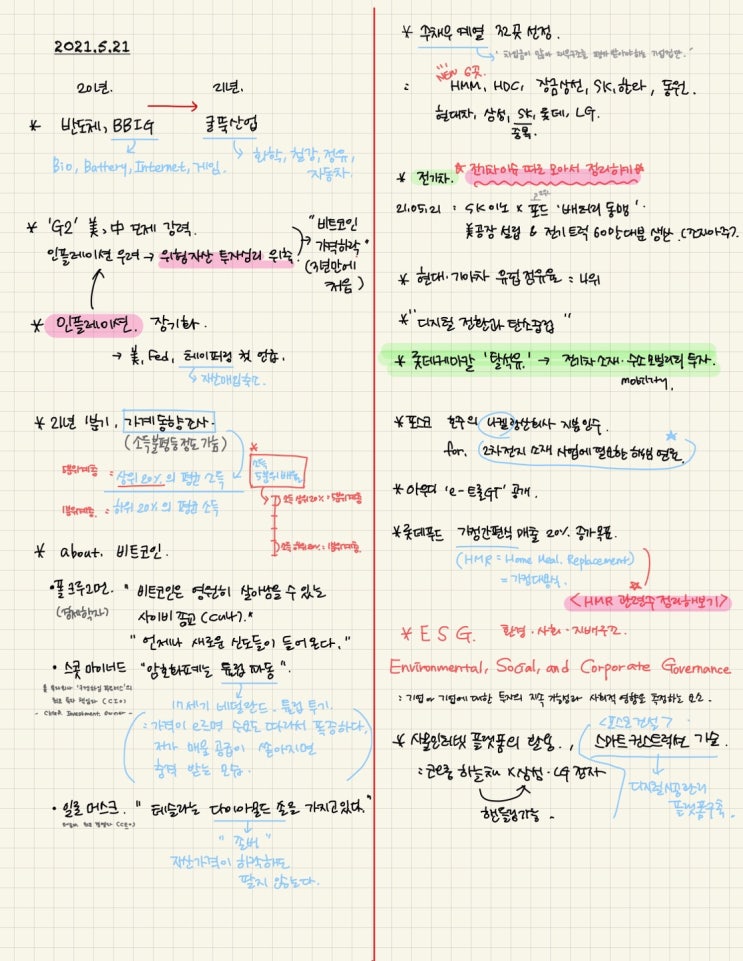 2021.5.21
20년. → 21년.
* 반도체, BBIG 굴뚝산업
Bio, Battery, Internet, 게임. 화학, 철강, 정유, 자동차.
* 'G2' 美, 中 모제 강력.
인플레이션 우려 → 위험자산 투자심리 위축.
→ "비트코인
가격하락"
(3년만에
처음)
* 인플레이션. 장기화.
→ 美, Fed, 테이퍼링 첫 언급.
자산매입축소.
* 21년 1분기, 가계동향조사.
(소득불평등정도 가늠)
5분위계층 = 상위 20%의 평균 소득
1분위계층. 하위 20%의 평균 소득
* 소득
5분위 배율
소득 상위 20% : 5분위계층
소득 하위 20% : 1분위계층
* about. 비트코인.
• 폴 크루그먼. "비트코인은 영원히 살아남을 수 있는
(경제학자) 사이비 종교 (cult)."
"언제나 새로운 신도들이 들어온다."
• 스콧 마이너드 "암호화폐는 튤립 파동".
최고 투자 책임자 (CIO)
- Chief Investment Officer -
17세기 네덜란드. 튤립 투기.
: 가격이 오르면 수요도 따라서 폭증하다,
저가 매물 공급이 쏟아지면
충격 받는 모습.
• 일론 머스크. "테슬라는 다이아몬드 손을 가지고 있다."
테슬라 최고 경영자 (CEO)
"존버"
자산가격이 하락해도
팔지 않는다.
* 주채무 계열 32곳 선정.
NEW 6곳.
: HMM, HDC, 장금상선, SK, 한라, 동원.
현대차, 삼성, SK, 롯데, LG.
* 전기차. * 전기차이슈 따로 모아서 정리하기 *
21.05.21 : SK이노 X 포드 '배터리 동맹'
美공장 설립 & 전기트럭 60만대분 생산.
* 현대·기아차 유럽 점유율 : 4위
* "디지털 전환과 탄소중립"
* 롯데케미칼 '탈석유.' → 전기차소재·수소모빌리티 투자.
mobility.
* 포스코 호주의 니켈광산회사 지분인수
for. 2차전지 소재 사업에 필요한 해법 연료.
* 아우디 'e-트론GT' 공개.
* 롯데푸드 가정간편식 매출 20% 증가목표.
(HMR = Home Meal. Replacement)
= 가정대용식.
<HMR 관련주 정리해보기>
* ESG. 환경·사회·지배구조
Environmental, Social, and Corporate Governance.
: 기업이나 기업에 대한 투자의 지속 가능성과 사회적 영향을 측정하는 요소.
* 사물인터넷 플랫폼의 활용.,
: 코오롱 하늘채 X 삼성·LG 전자
핸들링가능.
<포스코건설>
스마트컨스트럭션 기술.
디지털시공관리
플랫폼구축.